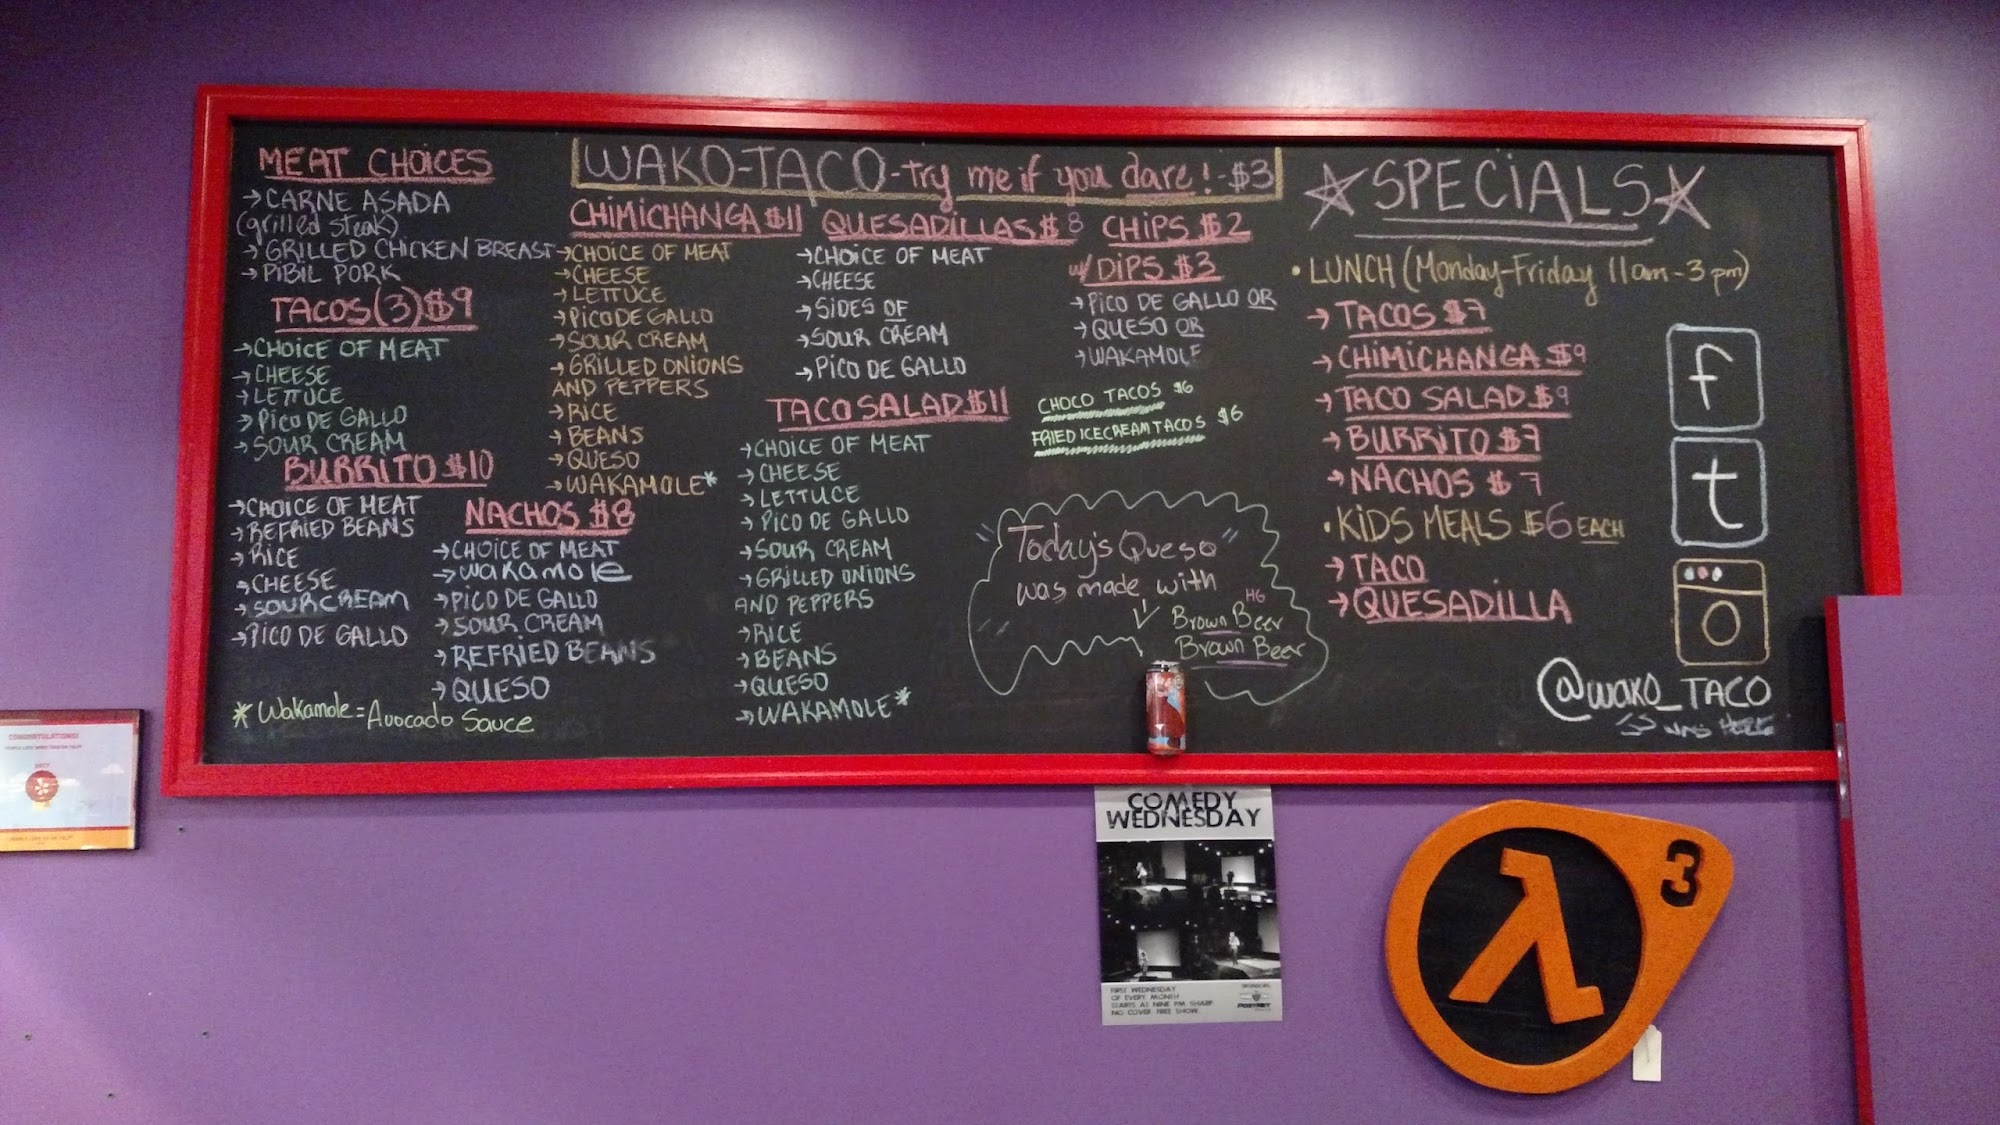 MEAT CHOICES
→ CARNE ASADA
(grilled steak)
→ GRILLED CHICKEN BREAST
→ PIBIL PORK
TACOS (3) $9
→ CHOICE OF MEAT
→ CHEESE
→ LETTUCE
→ PICO DE GALLO
→ SOUR CREAM
BURRITO $10
→ CHOICE OF MEAT
→ REFRIED BEANS
→ RICE
→ CHEESE
→ SOUR CREAM
→ PICO DE GALLO
* Wakamole = Avocado Sauce
WAKO-TACO - try me if you dare! - $3
CHIMICHANGA $11
→ CHOICE OF MEAT
→ CHEESE
→ LETTUCE
→ PICO DE GALLO
→ SOUR CREAM
→ GRILLED ONIONS
AND PEPPERS
→ RICE
→ BEANS
→ QUESO
→ WAKAMOLE*
NACHOS $8
→ CHOICE OF MEAT
→ wakamole
→ PICO DE GALLO
→ SOUR CREAM
→ REFRIED BEANS
→ QUESO
QUESADILLAS $8
→ CHOICE OF MEAT
→ CHEESE
→ SIDES OF
→ SOUR CREAM
→ PICO DE GALLO
TACO SALAD $11
→ CHOICE OF MEAT
→ CHEESE
→ LETTUCE
→ PICO DE GALLO
→ SOUR CREAM
→ GRILLED ONIONS
AND PEPPERS
→ RICE
→ BEANS
→ QUESO
→ WAKAMOLE*
CHIPS $2
w/ DIPS $3
→ PICO DE GALLO OR
→ QUESO OR
→ WAKAMOLE
CHOCO TACOS $6
FRIED ICECREAM TACOS $6
Today's Queso
was made with
HG
Brown Beer
Brown Beer
SPECIALS
• LUNCH (Monday-Friday 11am-3pm)
→ TACOS $7
→ CHIMICHANGA $9
→ TACO SALAD $9
→ BURRITO $7
→ NACHOS $7
• KIDS MEALS $6 EACH
→ TACO
→ QUESADILLA
f
t
@WAKO_TACO
WAS HERE
CONGRATULATIONS!
COMEDY
WEDNESDAY
FIRST WEDNESDAY
OF EVERY MONTH
STARTS AT NINE PM SHARP
NO COVER FREE SHOW
λ
3